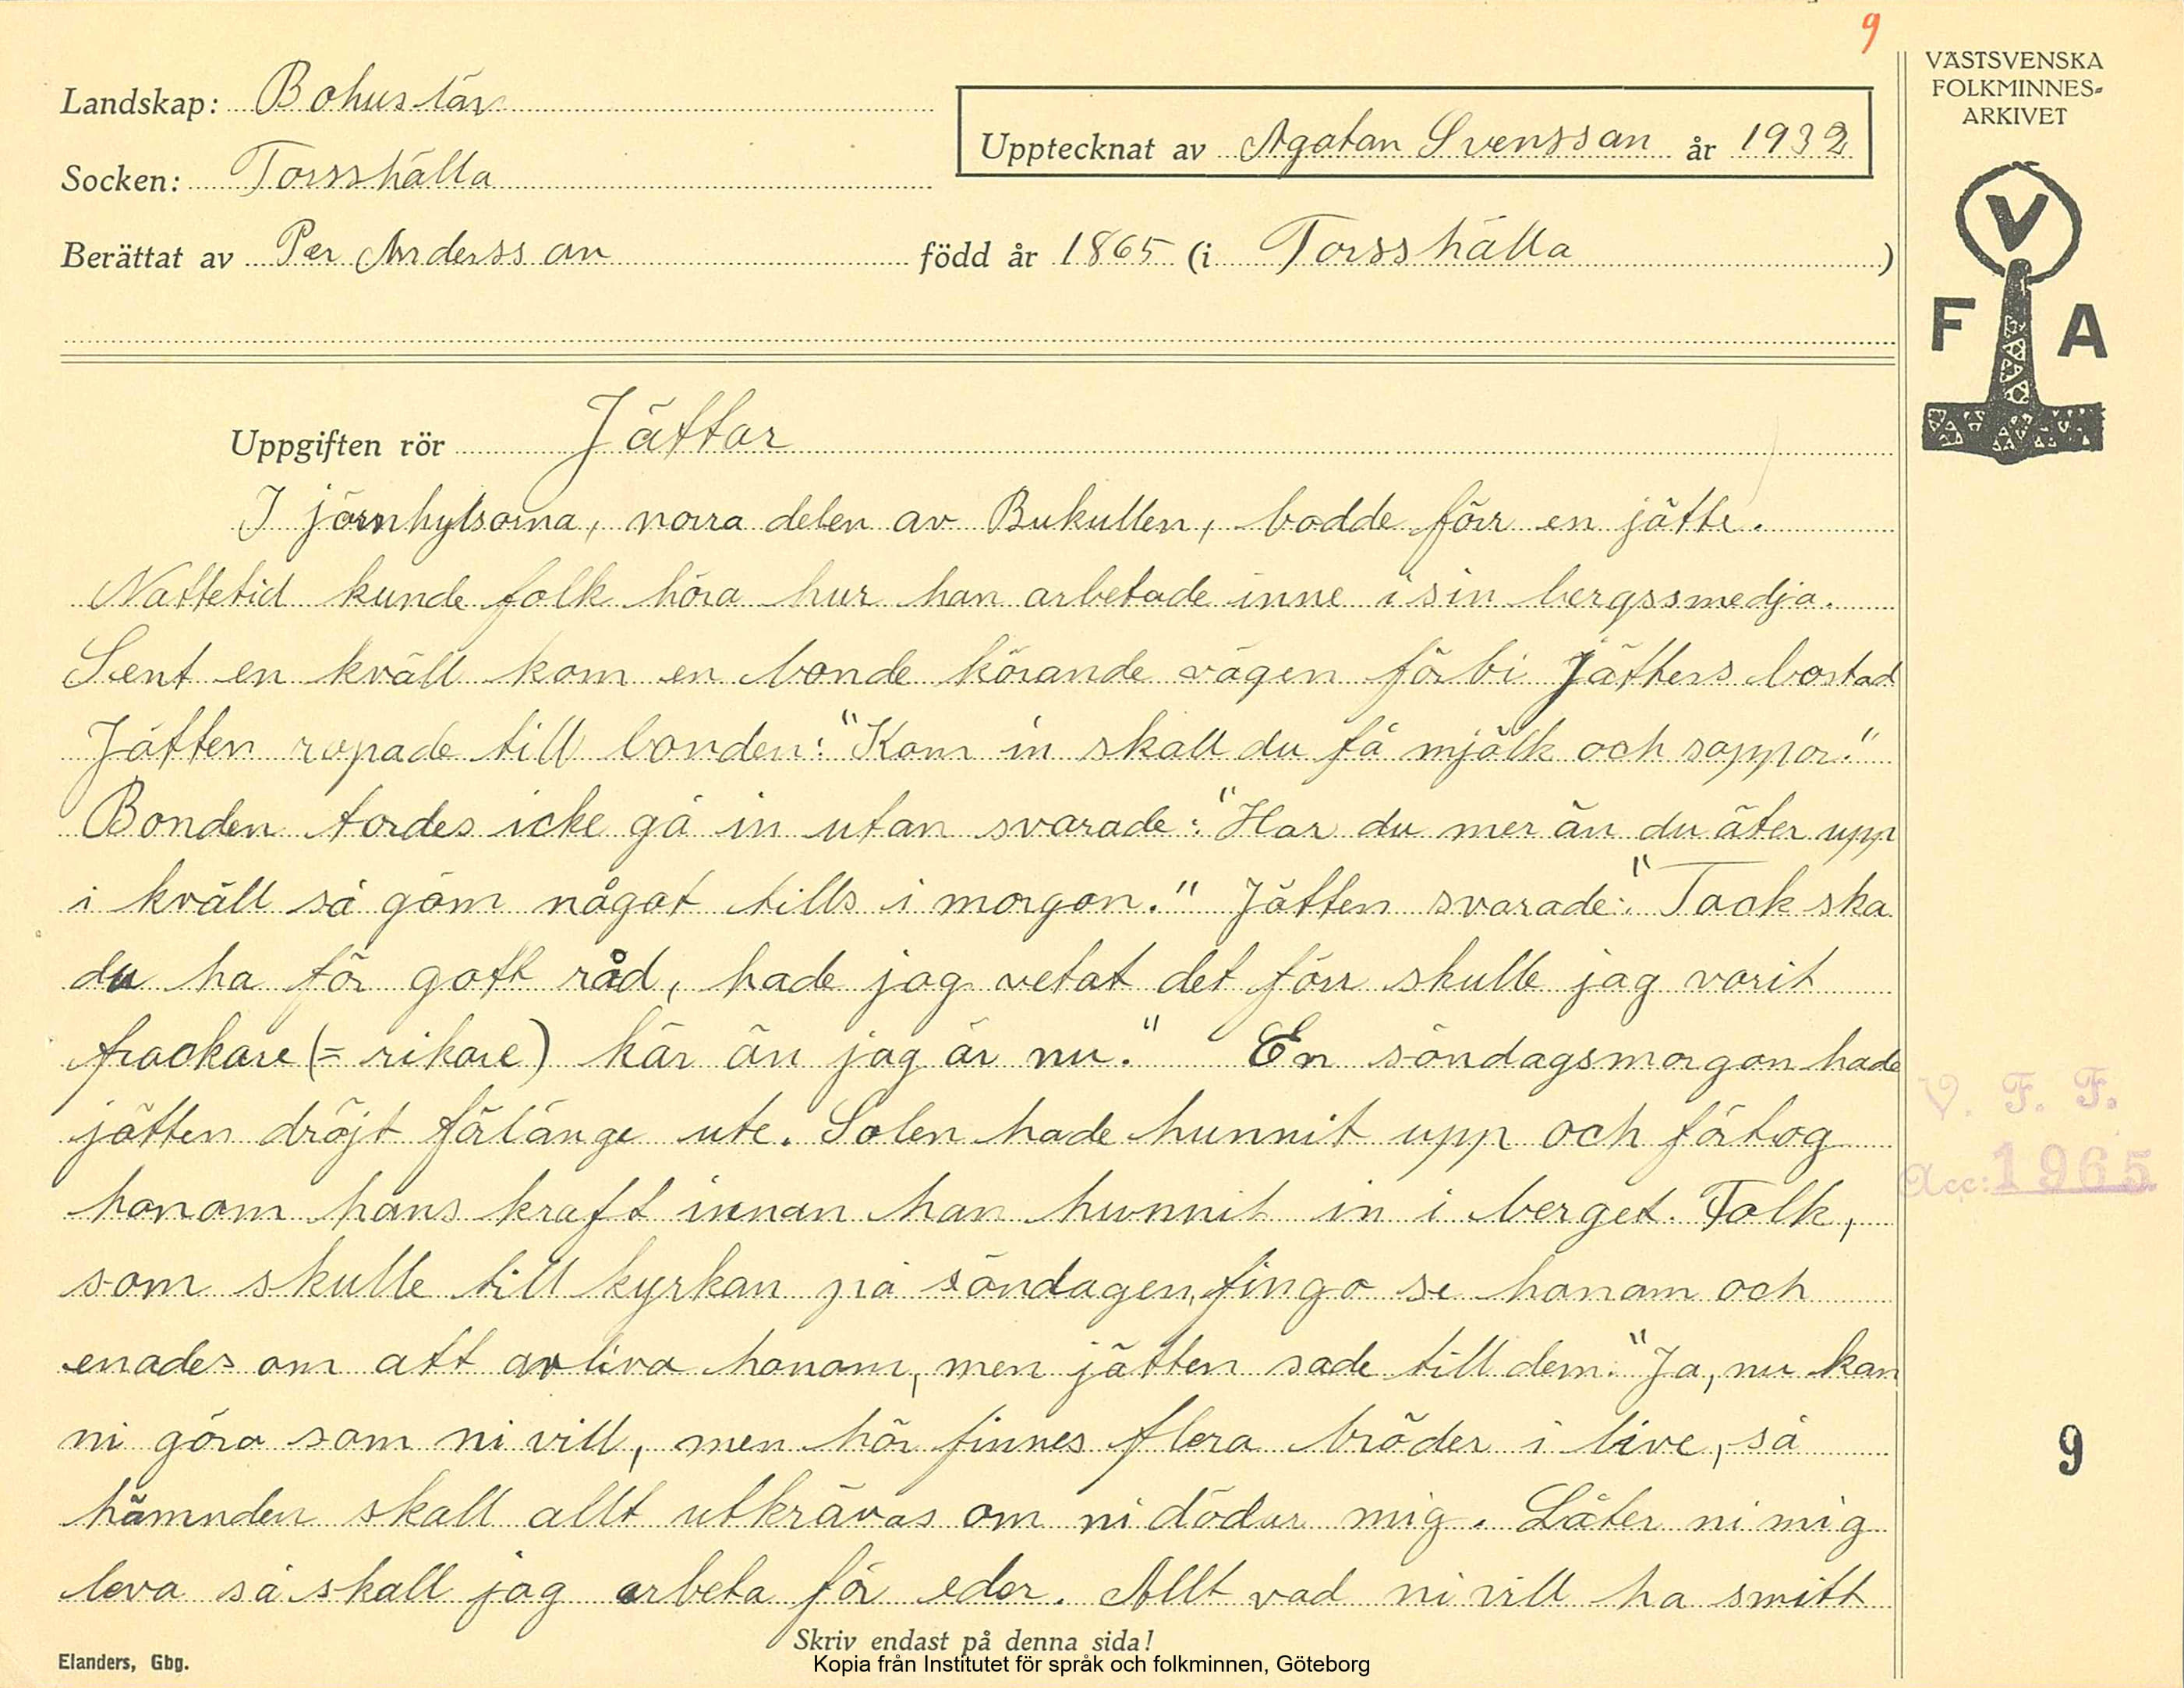 9
VÄSTSVENSKA
FOLKMINNES-
ARKIVET
Landskap: Bohuslän
Upptecknat av Agaton Svensson år 1932
Socken: Torsshälla
Berättat av Per Andersson född år 1865 (i Torsshälla)
V
F A
Uppgiften rör Jättar
I järnhylsorna, norra delen av Bukullen, bodde förr en jätte.
Nattetid kunde folk höra hur han arbetade inne i sin bergssmedja.
Sent en kväll kom en bonde körande vägen förbi Jättens bostad
Jätten ropade till bonden: "Kom in skall du få mjölk och soppor."
Bonden tordes icke gå in utan svarade: "Har du mer än du äter upp
i kväll så göm något tills i morgon." Jätten svarade: "Tack ska
du ha för gott råd, hade jag vetat det förr skulle jag varit
frackare (= rikare) kär än jag är nu." En söndagsmorgon hade
jätten dröjt förlänge ute. Solen hade hunnit upp och förtog
honom hans kraft innan han hunnit in i berget. Folk,
som skulle till kyrkan på söndagen, fingo se honom och
enades om att avliva honom, men jätten sade till dem: "Ja, nu kan
ni göra som ni vill, men här finnes flera bröder i live, så
hämnden skall allt utkrävas om ni dödar mig. Låter ni mig
leva så skall jag arbeta för eder. Allt vad ni vill ha smitt
V. F. F.
Acc: 1965
9
Skriv endast på denna sida!
Elanders, Gbg.
Kopia från Institutet för språk och folkminnen, Göteborg